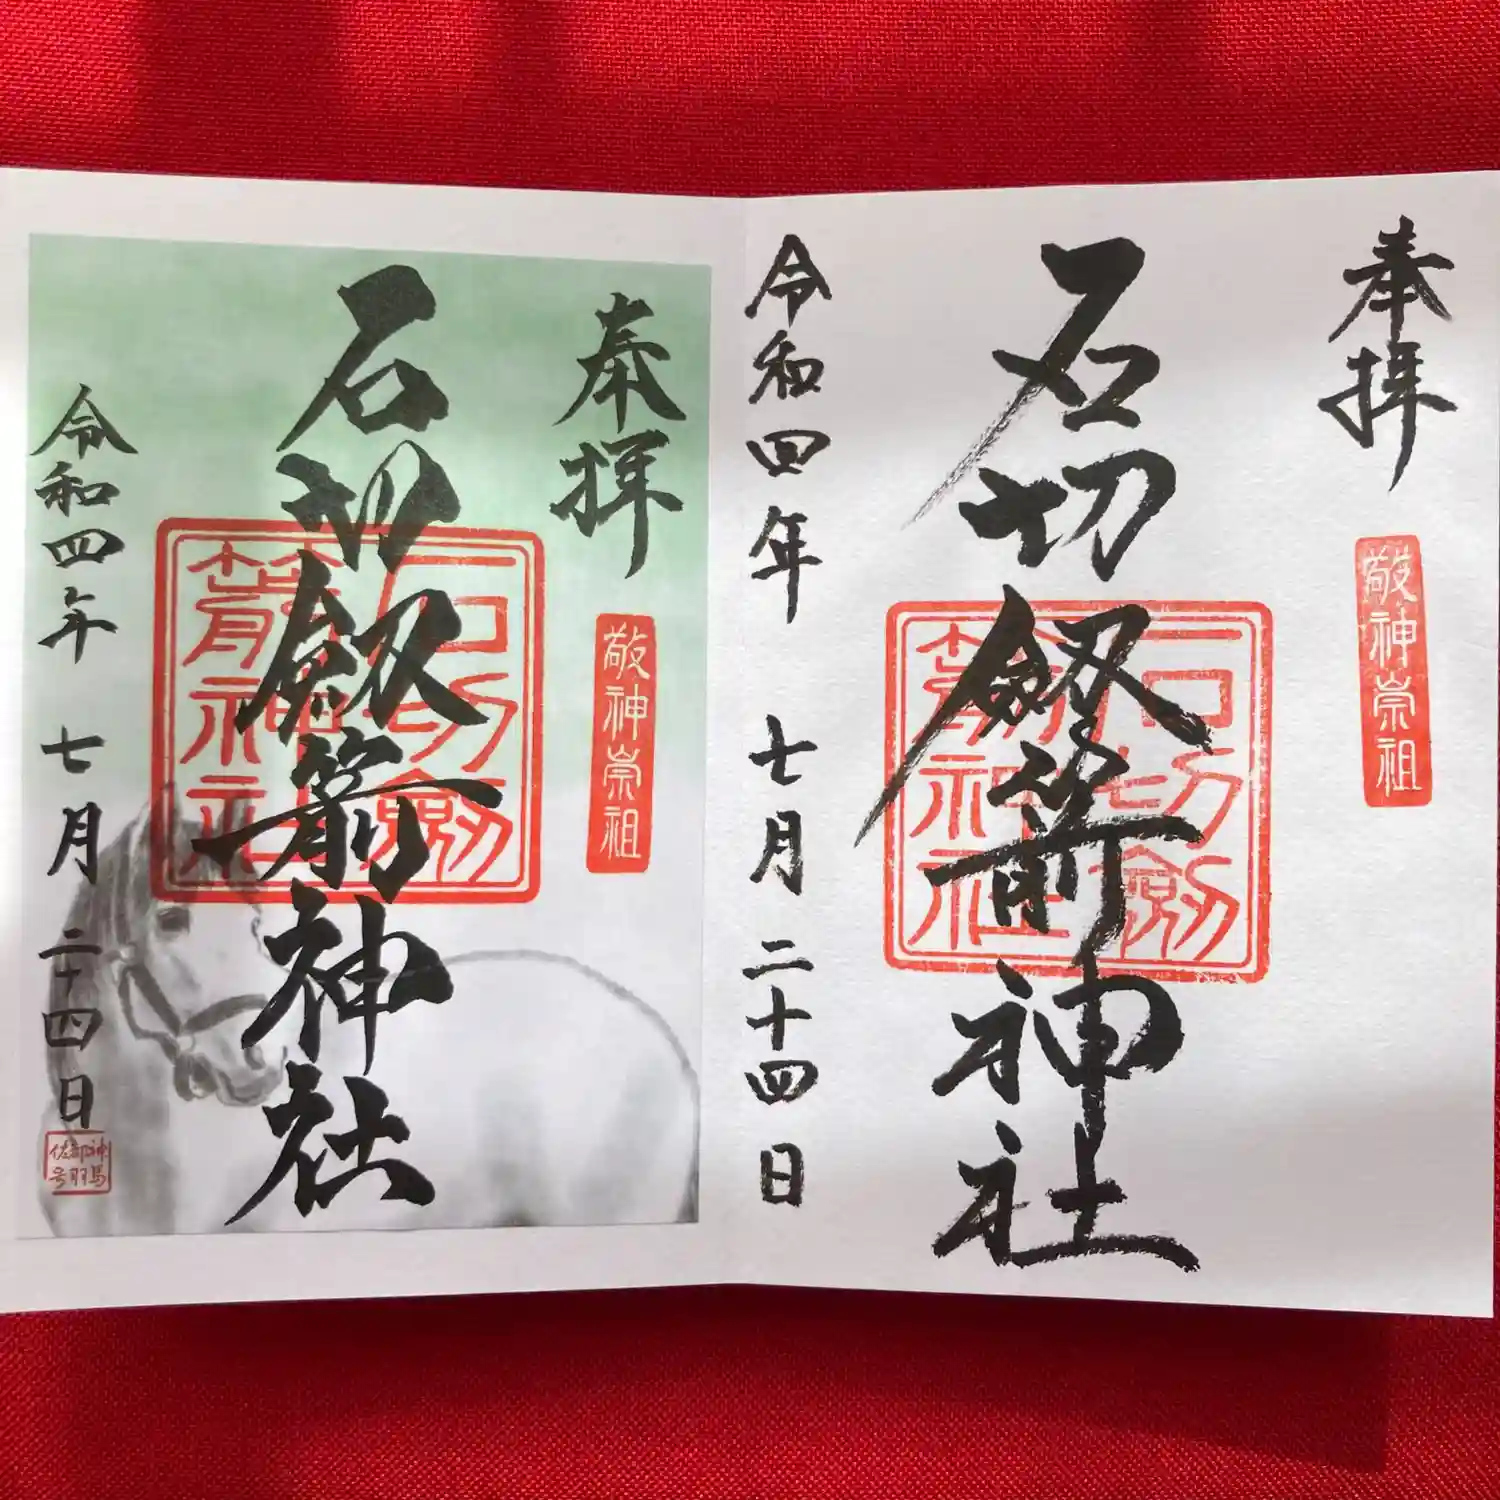 奉拝
敬神崇祖
石切劔箭神社
石切劔箭神社
令和四年 七月二十四日
奉拝
敬神崇祖
石切劔箭神社
石切劔箭神社
令和四年 七月二十四日
神馬
部羽
佐号